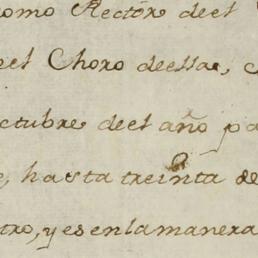 como Rector deel
el Choro deella,
ctubre deel año pa
e, hasta treinta de
tro, y es enlamanera